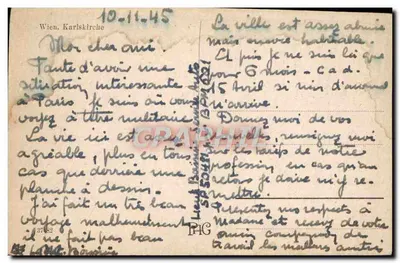 10-11-45
Wien. Karlskirche
Mon cher ami.
Faute d'avoir une
situation intéressante
à Paris, je suis où vous
voyez à titre militaire
La vie ici est
agréable, plus en tous
cas que derrière une
planche à dessin.
J'ai fait un très beau
voyage malheureusement
il ne fait pas beau
La ville est assez abimée
mais encore habitable.
Et puis je ne suis ici que
pour 6 mois - c.a.d.
15 Avril si rien d'anormal
n'arrive.
Donnez moi de vos
renseignez moi
sur tarifs de notre
profession, en cas qu'au
retour je doive m'y
Présentez mes respects à
Madame et recevez de votre
ami compagnon de
travail les meilleures
SP 50481 BPM 021
PIC